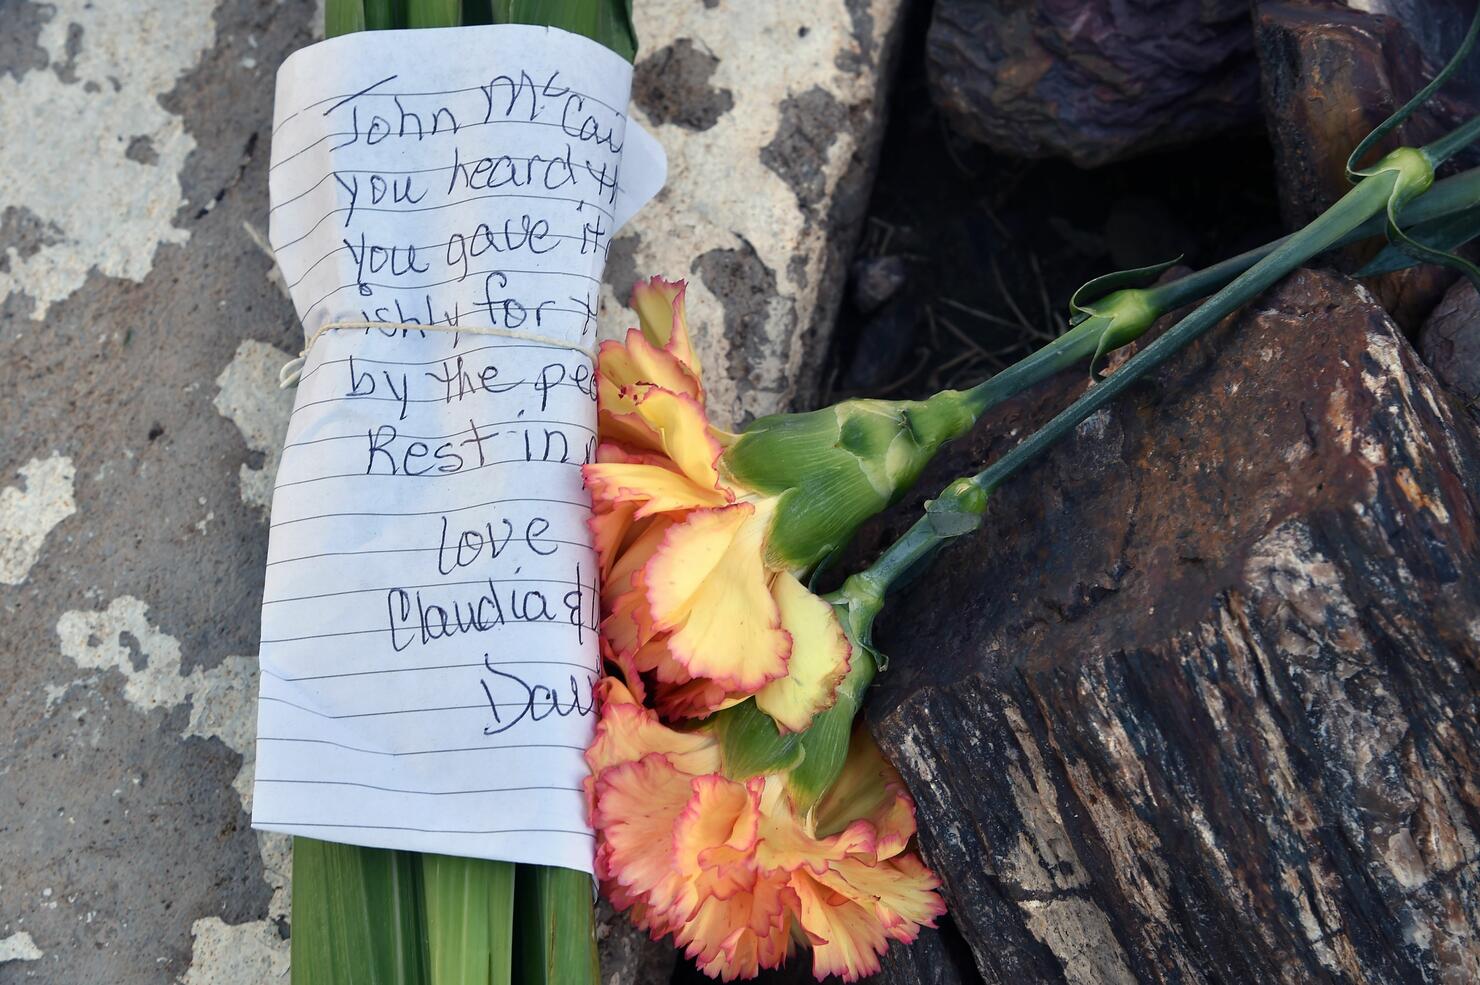 John McCai
you heard th
you gave it
ishly for t
by the peo
Rest in
Love
Claudia &
Davi